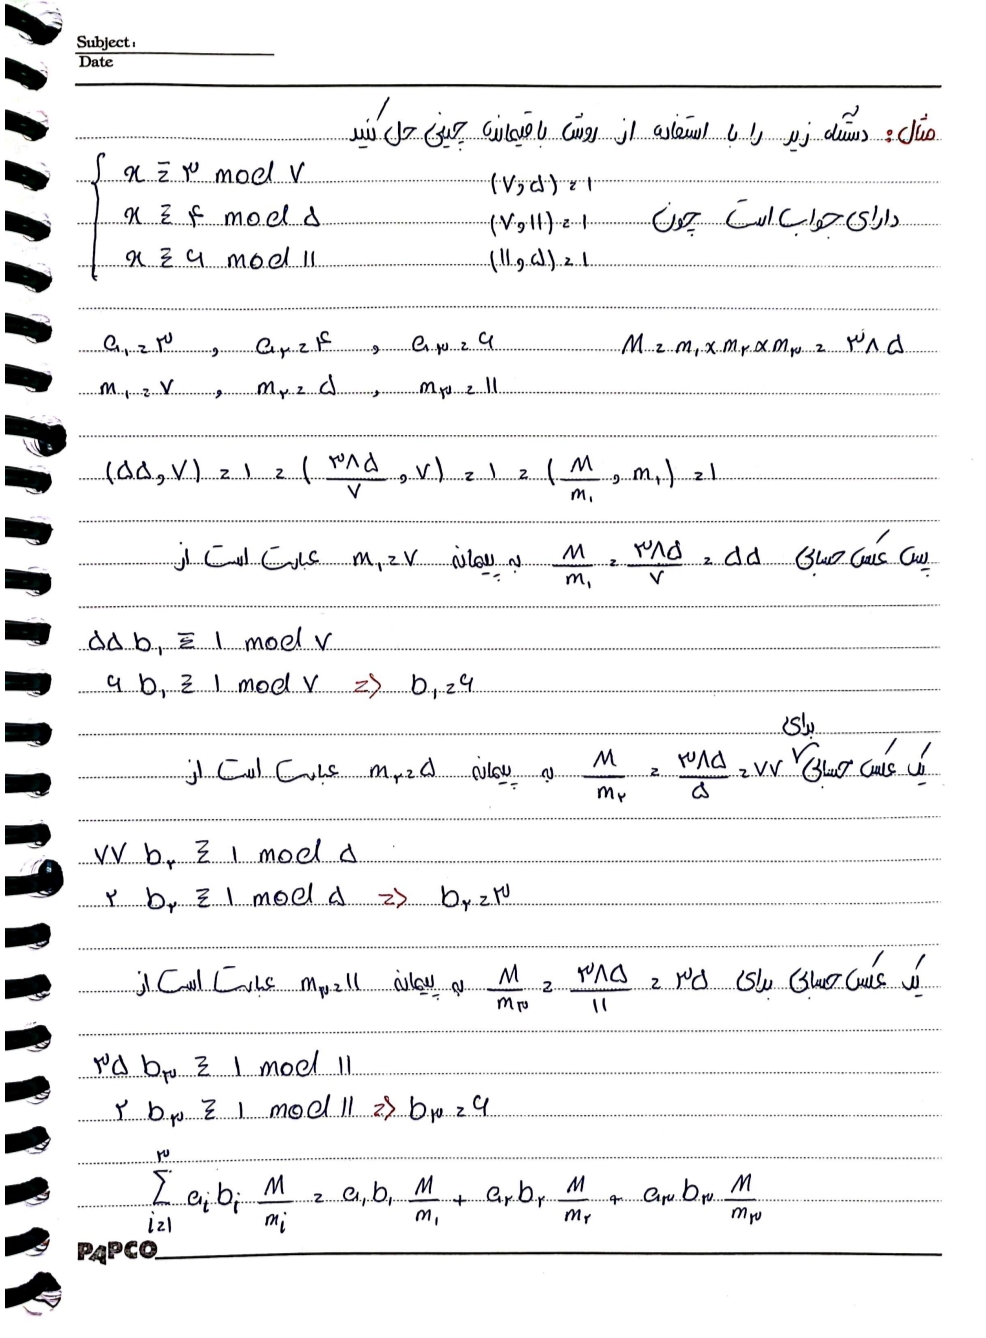 Subject:
Date
مثال: دستگاه زیر را با استفاده از روش باقیمانده چینی حل کنید
x ≡ ۳ mod ۷ (۷و۵) = ۱
x ≡ ۴ mod ۵ (۷و۱۱) = ۱ دارای جواب است چون
x ≡ ۶ mod ۱۱ (۱۱و۵) = ۱
a₁ = ۳ , a₂ = ۴ , a₃ = ۶ M = m₁ × m₂ × m₃ = ۳۸۵
m₁ = ۷ , m₂ = ۵ , m₃ = ۱۱
(۵۵و۷) = ۱ = (۳۸۵/۷ و ۷) = ۱ = (M/m₁ و m₁) = ۱
پس عکس حسابی M/m₁ = ۳۸۵/۷ = ۵۵ به پیمانه m₁ = ۷ عبارت است از
۵۵ b₁ ≡ ۱ mod ۷
۶ b₁ ≡ ۱ mod ۷ => b₁ = ۶
یک عکس حسابی برای M/m₂ = ۳۸۵/۵ = ۷۷ به پیمانه m₂ = ۵ عبارت است از
۷۷ b₂ ≡ ۱ mod ۵
۲ b₂ ≡ ۱ mod ۵ => b₂ = ۳
یک عکس حسابی برای M/m₃ = ۳۸۵/۱۱ = ۳۵ به پیمانه m₃ = ۱۱ عبارت است از
۳۵ b₃ ≡ ۱ mod ۱۱
۲ b₃ ≡ ۱ mod ۱۱ => b₃ = ۶
∑_{i=1}^{۳} aᵢ bᵢ M/mᵢ = a₁ b₁ M/m₁ + a₂ b₂ M/m₂ + a₃ b₃ M/m₃
PAPCO